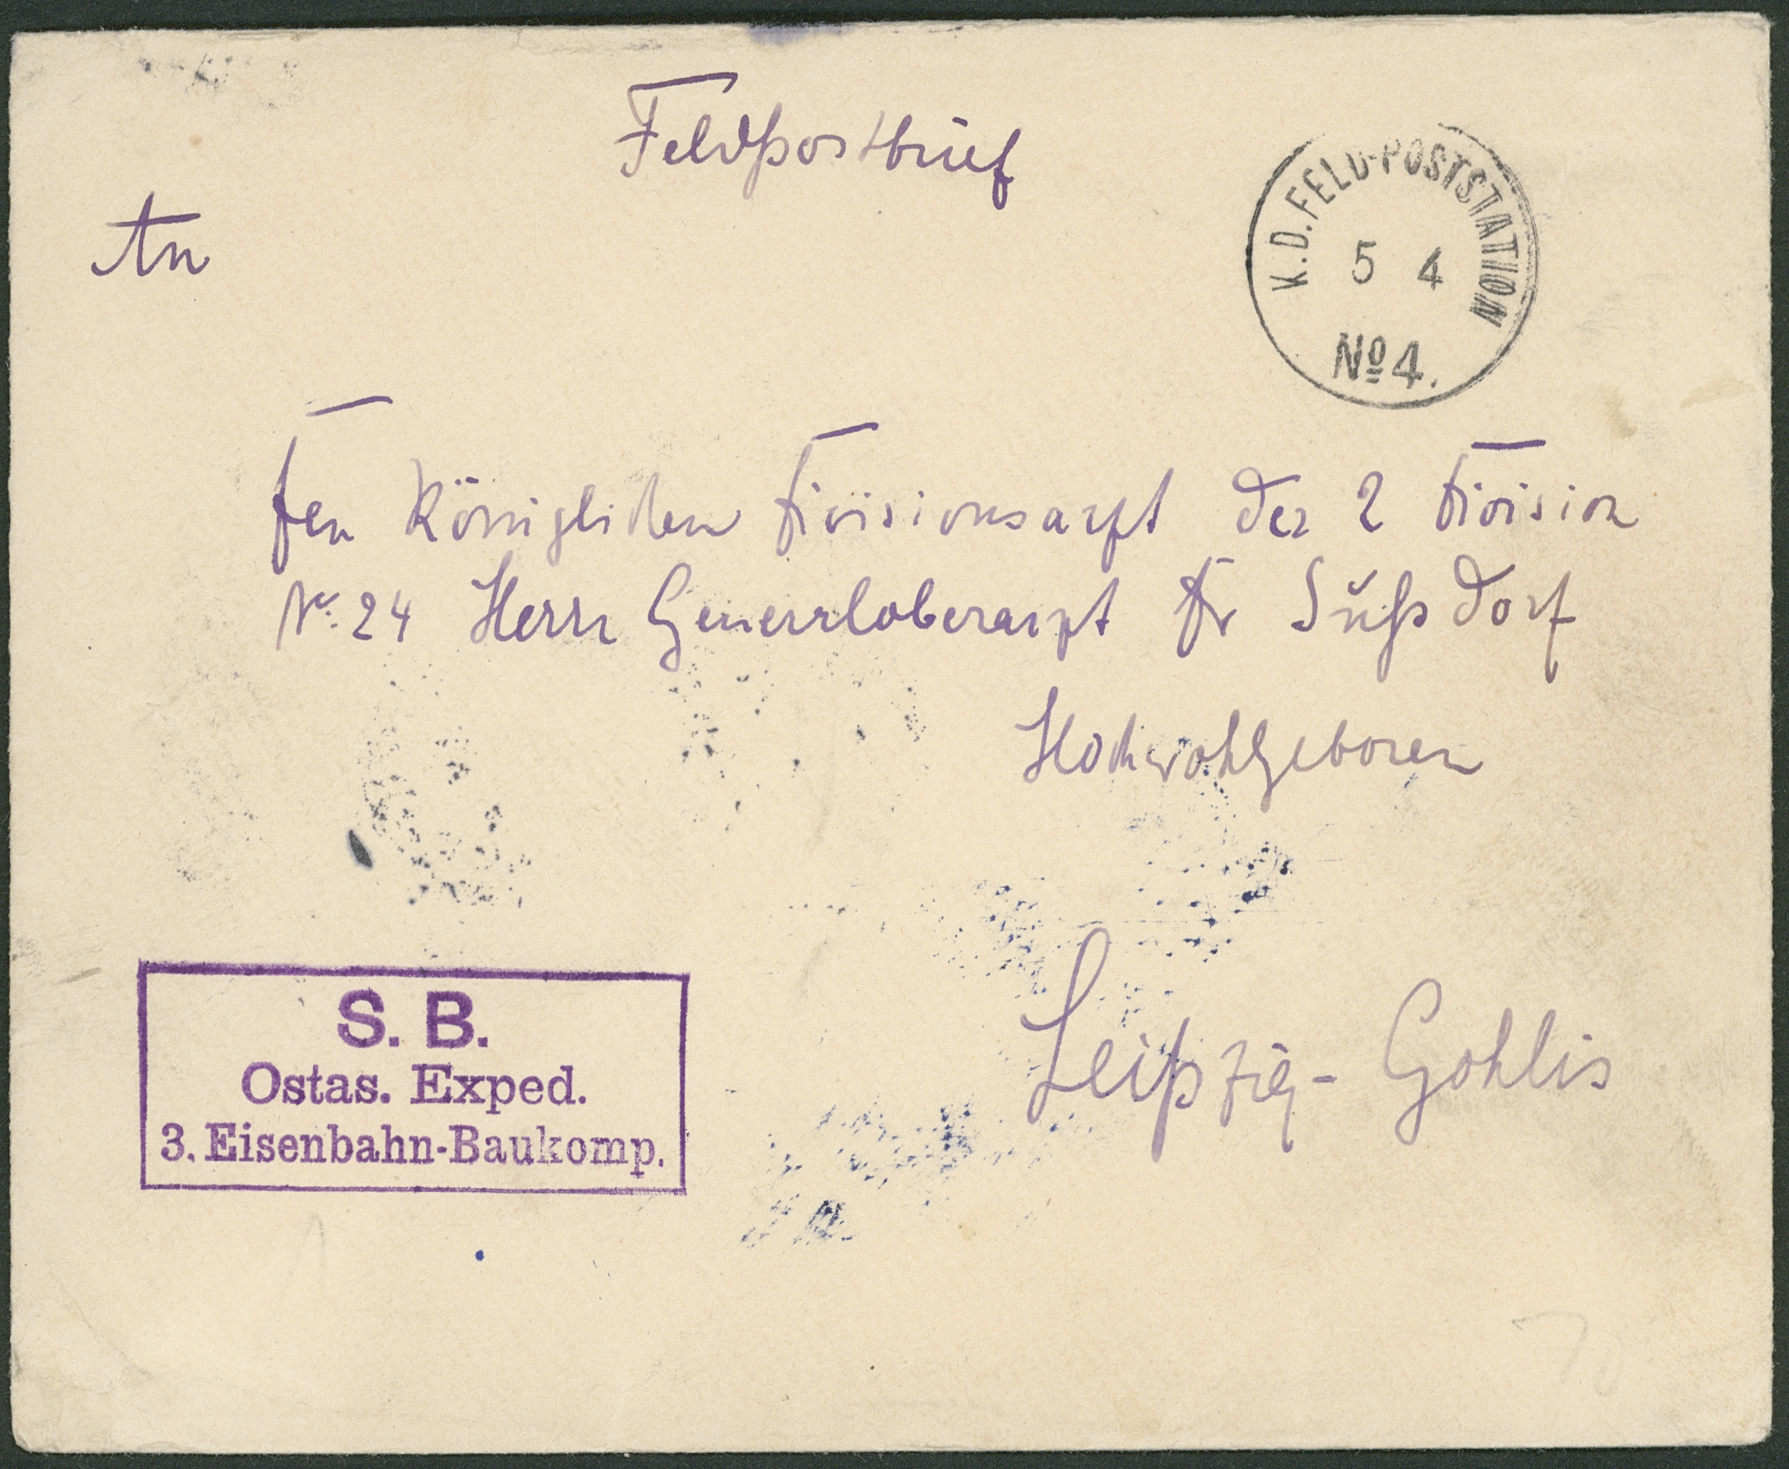 Feldpostbrief
K. D. FELD-POSTSTATION
5 4
No 4.
An
Den Königlichen Divisionsarzt der 2 Division
No. 24 Herrn Generaloberarzt Dr Süßdorf
Hochwohlgeboren
Leipzig - Gohlis
S. B.
Ostas. Exped.
3. Eisenbahn-Baukomp.